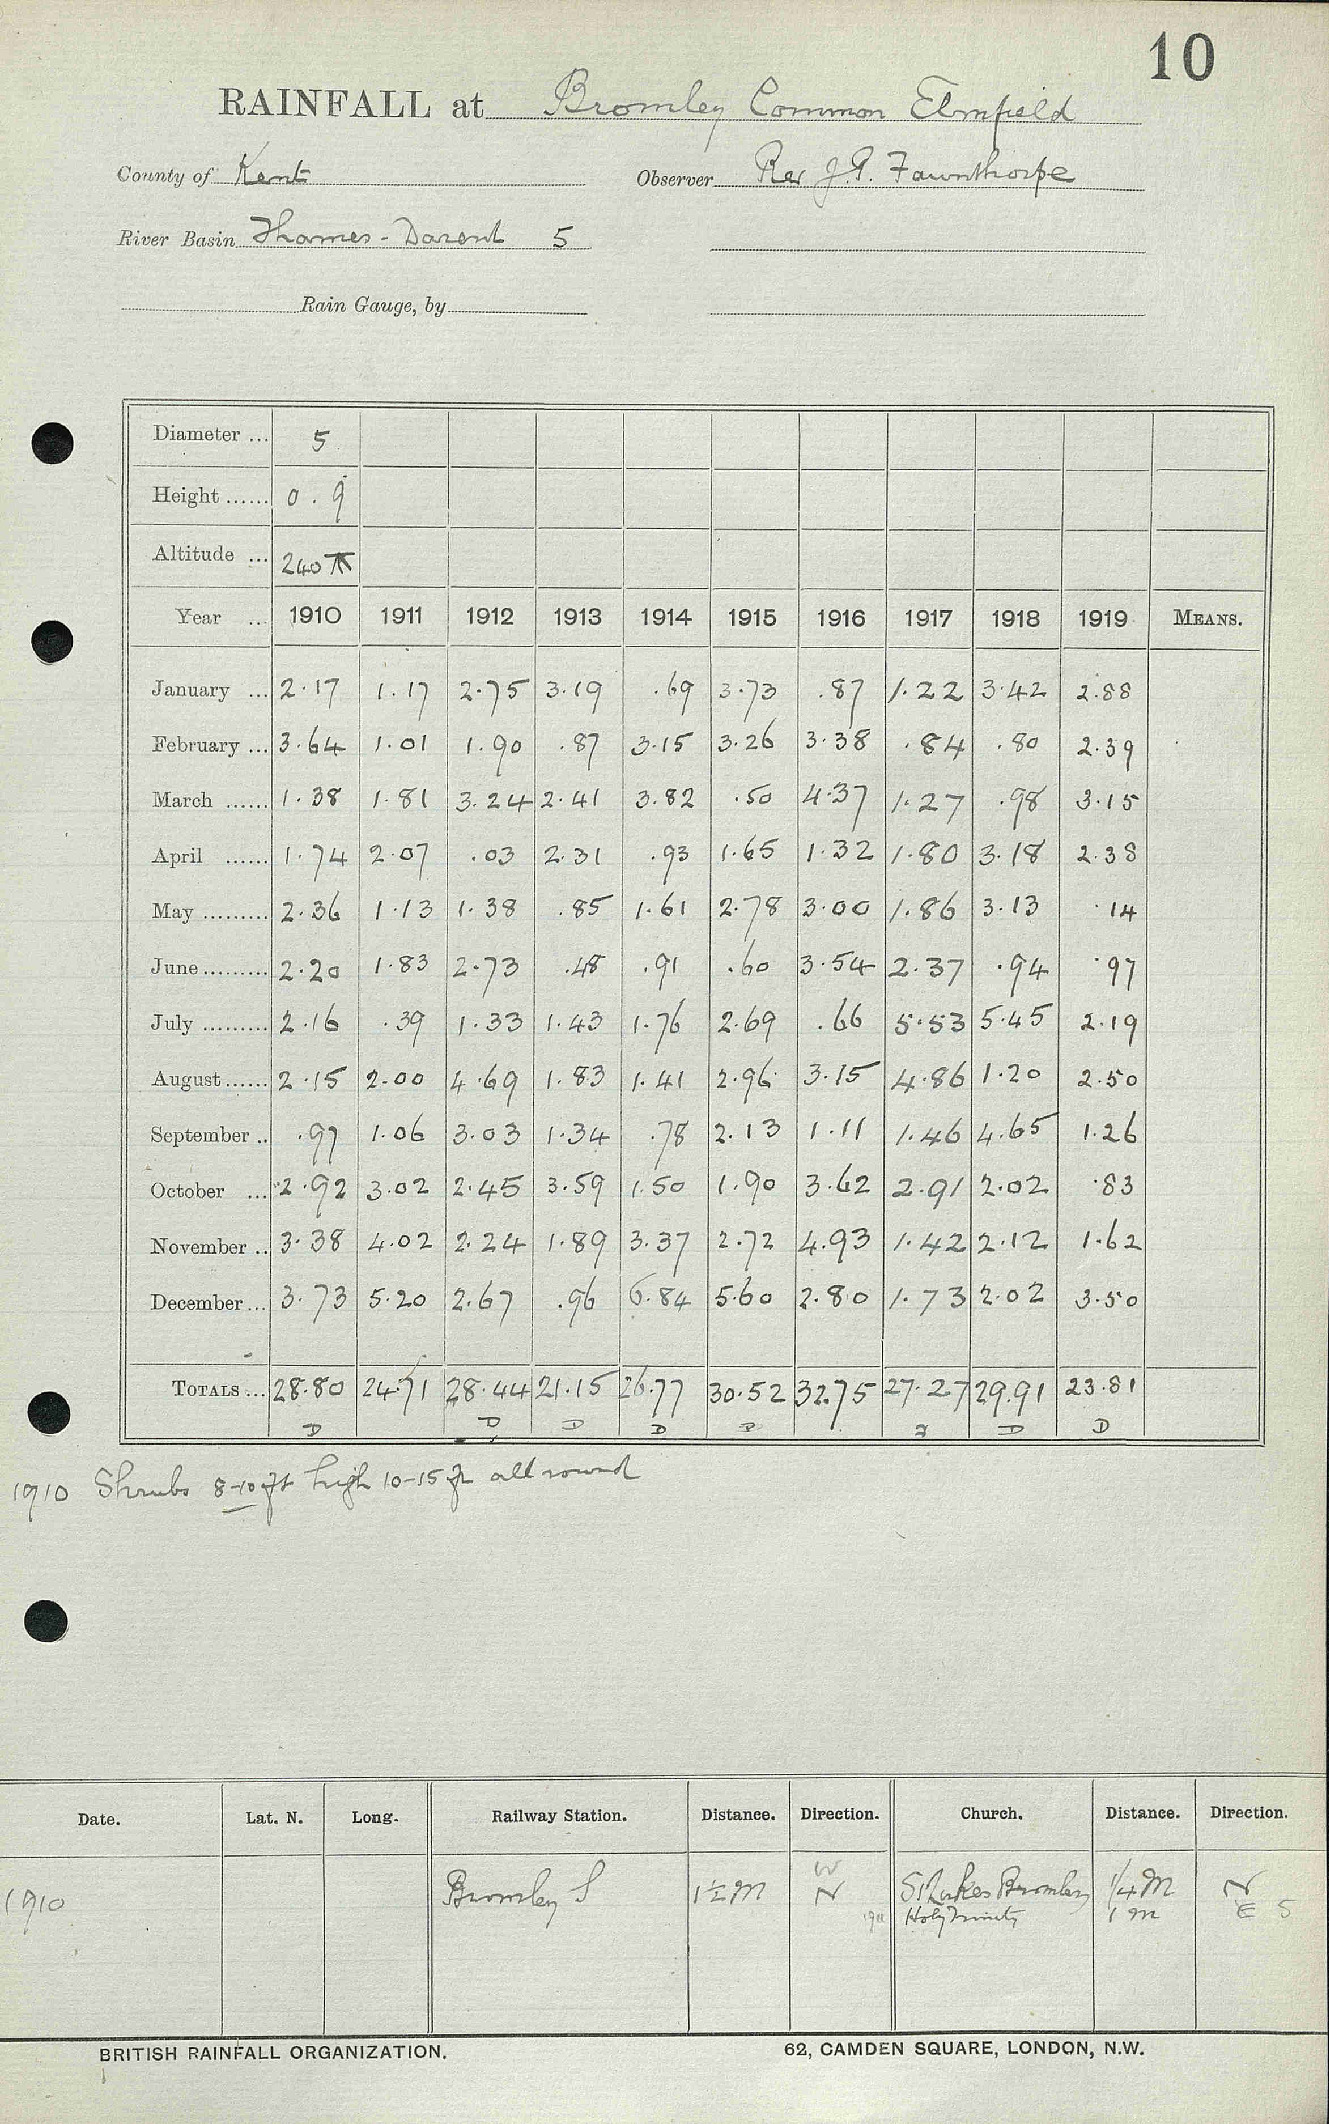 10
RAINFALL at Bromley Common Elmfield
County of Kent Observer Rev J.P. Fawnthorpe
River Basin Thames - Darent 5
Rain Gauge, by
Diameter ... 5
Height ...... 0.9
Altitude ... 240
Year ... 1910 1911 1912 1913 1914 1915 1916 1917 1918 1919 MEANS.
January ... 2.17 1.17 2.75 3.19 .69 3.73 .87 1.22 3.42 2.88
February ... 3.64 1.01 1.90 .87 3.15 3.26 3.38 .84 .80 2.39
March ...... 1.38 1.81 3.24 2.41 3.82 .50 4.37 1.27 .98 3.15
April ...... 1.74 2.07 .03 2.31 .93 1.65 1.32 1.80 3.18 2.38
May ......... 2.36 1.13 1.38 .85 1.61 2.78 3.00 1.86 3.13 .14
June ......... 2.20 1.83 2.73 .48 .91 .60 3.54 2.37 .94 .97
July ......... 2.16 .39 1.33 1.43 1.76 2.69 .66 5.53 5.45 2.19
August ...... 2.15 2.00 4.69 1.83 1.41 2.96 3.15 4.86 1.20 2.50
September .. .97 1.06 3.03 1.34 .78 2.13 1.11 1.46 4.65 1.26
October ... 2.92 3.02 2.45 3.59 1.50 1.90 3.62 2.91 2.02 .83
November .. 3.38 4.02 2.24 1.89 3.37 2.72 4.93 1.42 2.12 1.62
December ... 3.73 5.20 2.67 .96 6.84 5.60 2.80 1.73 2.02 3.50
TOTALS ... 28.80 24.71 28.44 21.15 26.77 30.52 32.75 27.27 29.91 23.81
D D D D D D D
1910 Shrubs 8-10 ft high 10-15 ft all round
Date. Lat. N. Long. Railway Station. Distance. Direction. Church. Distance. Direction.
W
1910 Bromley S 1½ M N St Lukes Bromley 1/4 M N
1911 Holy Trinity 1 M E S
BRITISH RAINFALL ORGANIZATION. 62, CAMDEN SQUARE, LONDON, N.W.